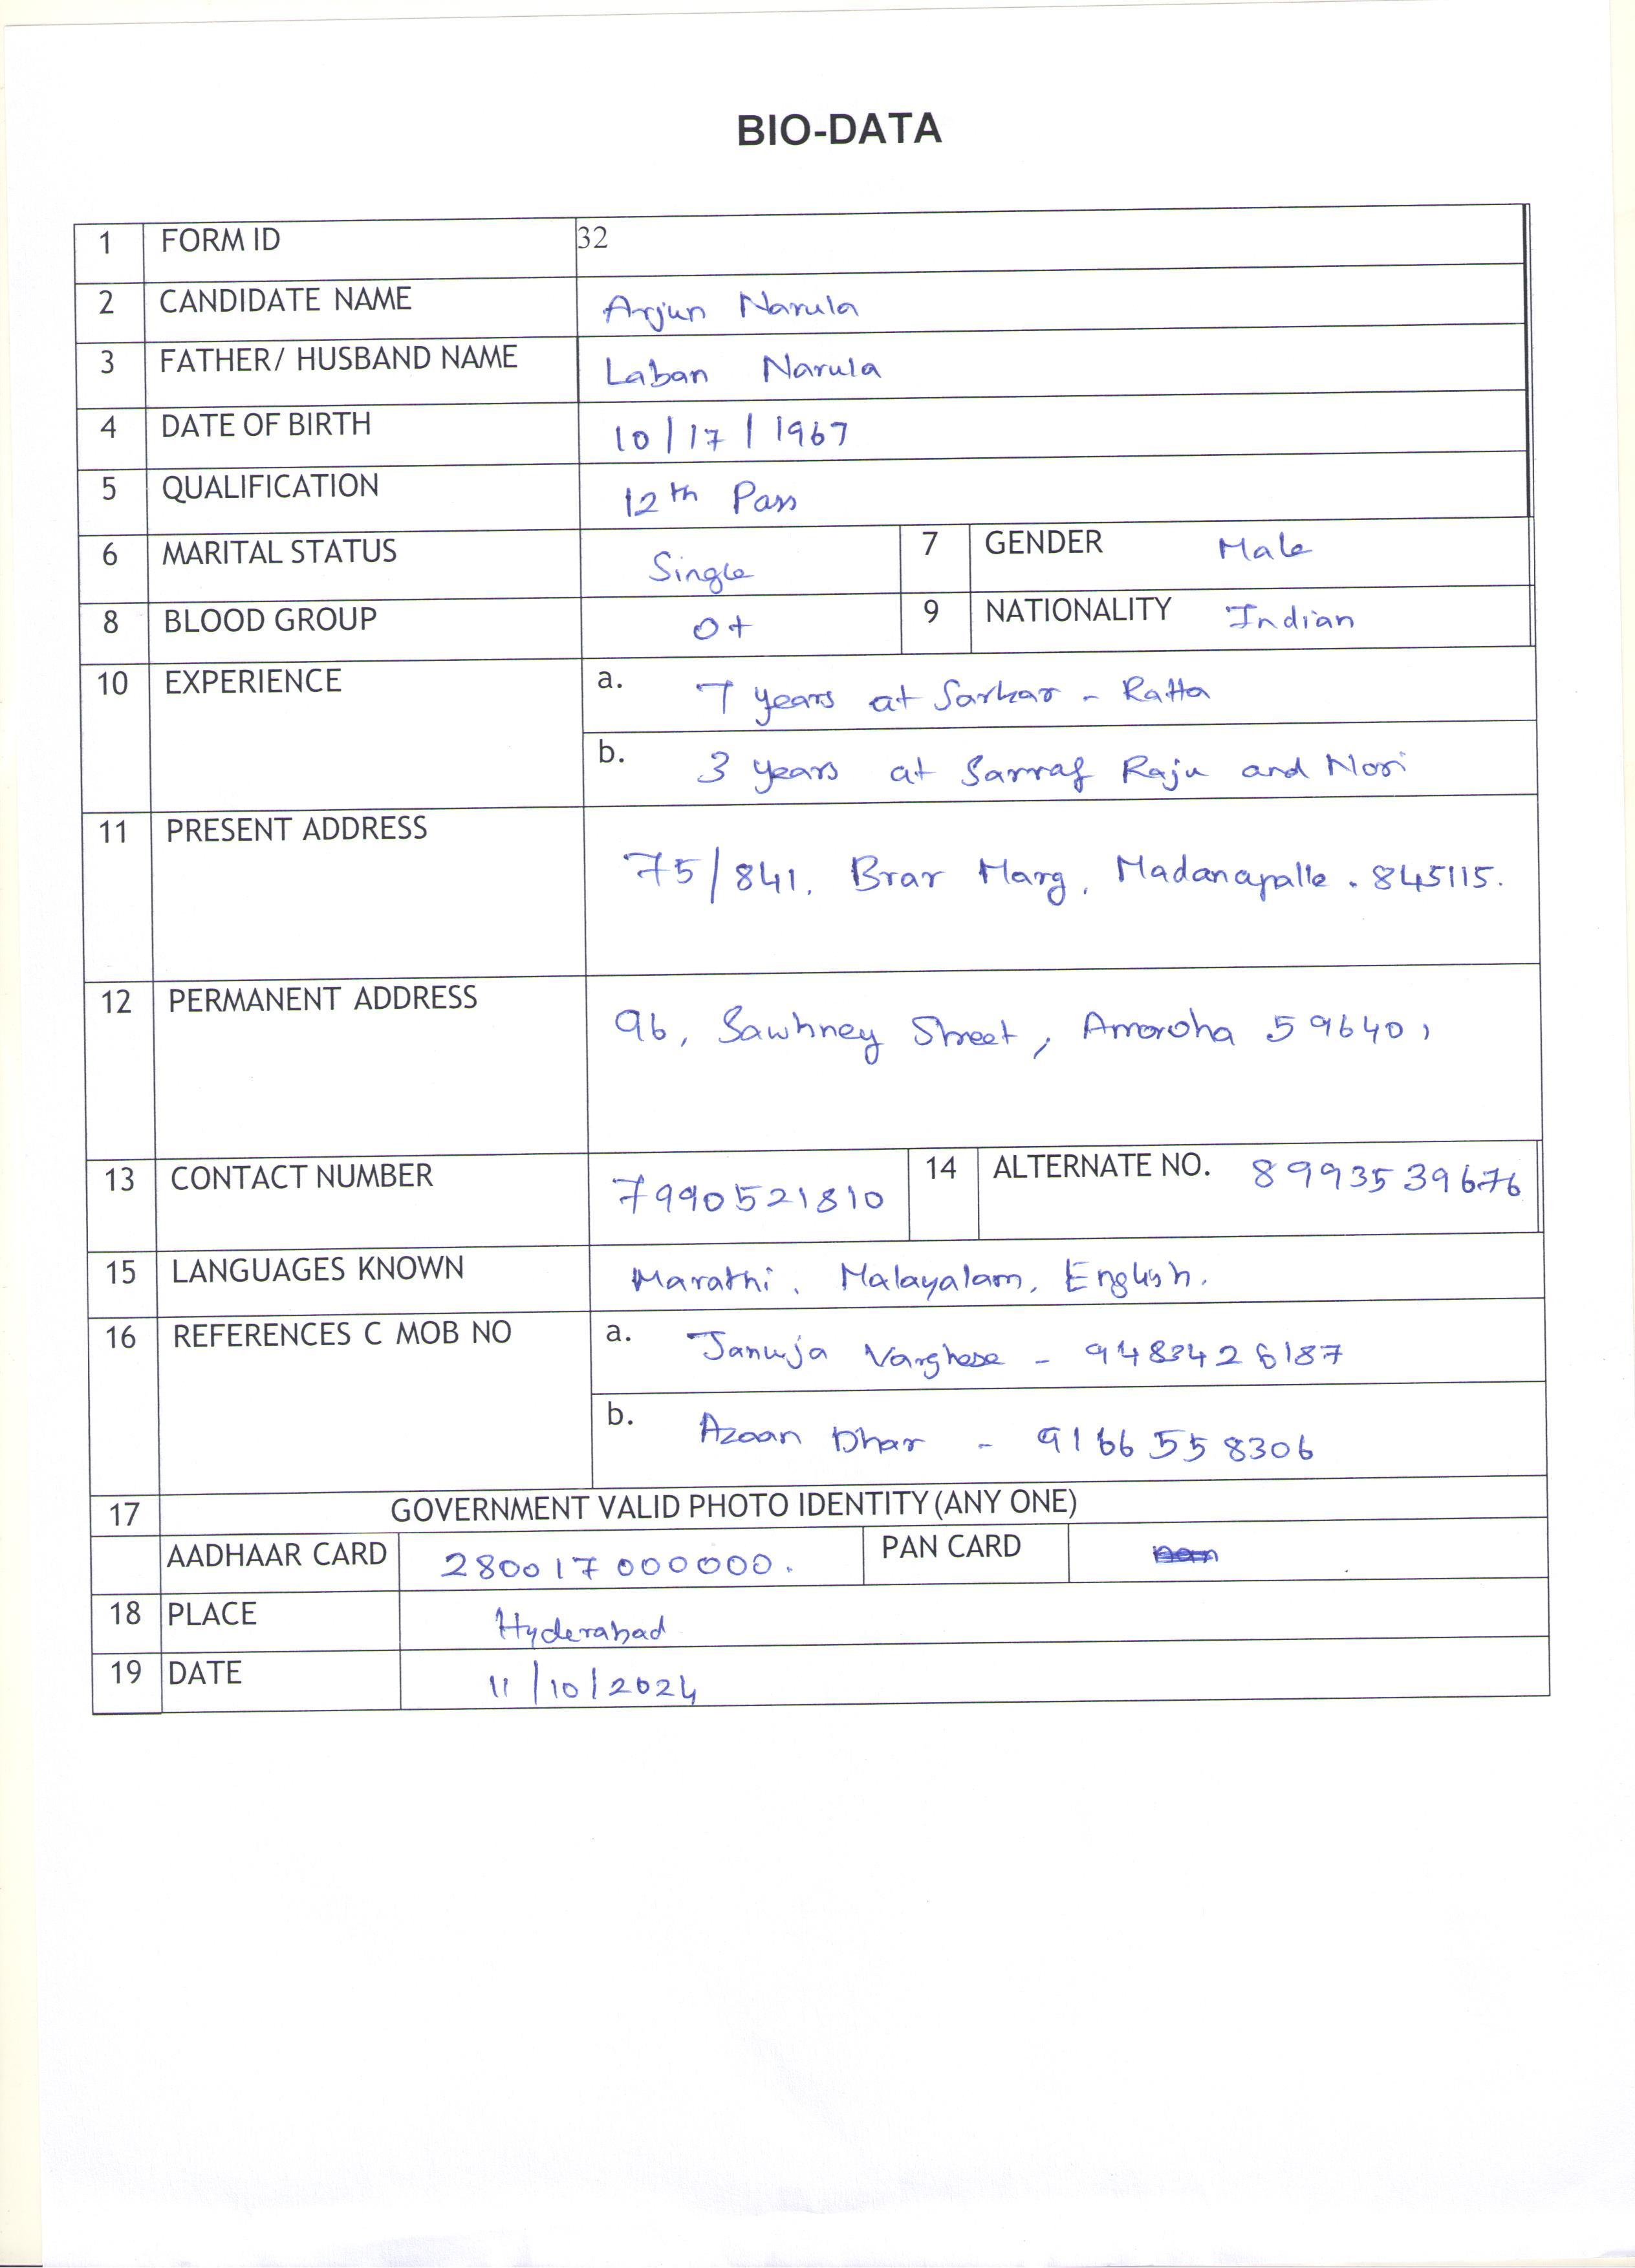 BIO-DATA
1 FORM ID 32
2 CANDIDATE NAME Arjun Narula
3 FATHER/ HUSBAND NAME Laban Narula
4 DATE OF BIRTH 10/17/1967
5 QUALIFICATION 12th Pass
6 MARITAL STATUS Single 7 GENDER Male
8 BLOOD GROUP O+ 9 NATIONALITY Indian
10 EXPERIENCE a. 7 years at Sarkar - Ratta
b. 3 years at Sarraf Raju and Nori
11 PRESENT ADDRESS 75/841, Brar Marg, Madanapalle. 845115.
12 PERMANENT ADDRESS 96, Sawhney Street, Amroha 596401
13 CONTACT NUMBER 7990521810 14 ALTERNATE NO. 8993539676
15 LANGUAGES KNOWN Marathi, Malayalam, English.
16 REFERENCES C MOB NO a. Januja Varghese - 9483426187
b. Azaan Dhar - 9166558306
17 GOVERNMENT VALID PHOTO IDENTITY(ANY ONE)
AADHAAR CARD 280017000000. PAN CARD
18 PLACE Hyderabad
19 DATE 11/10/2024